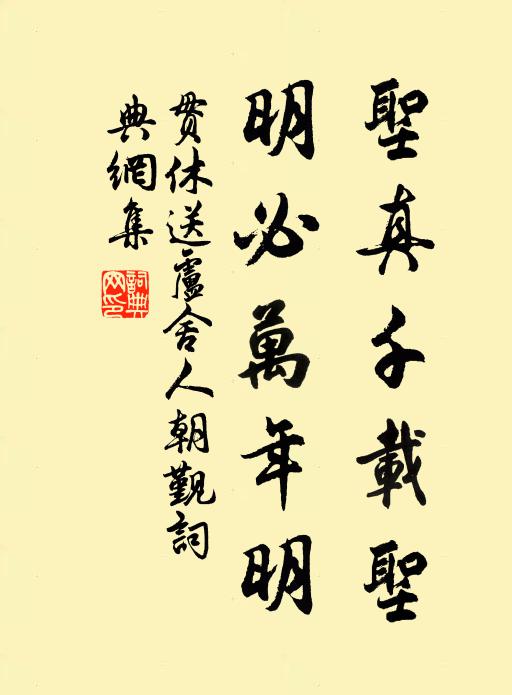 聖真千載聖
明必萬年明
貫休送盧舍人朝觐詞
典網集
詞典网印